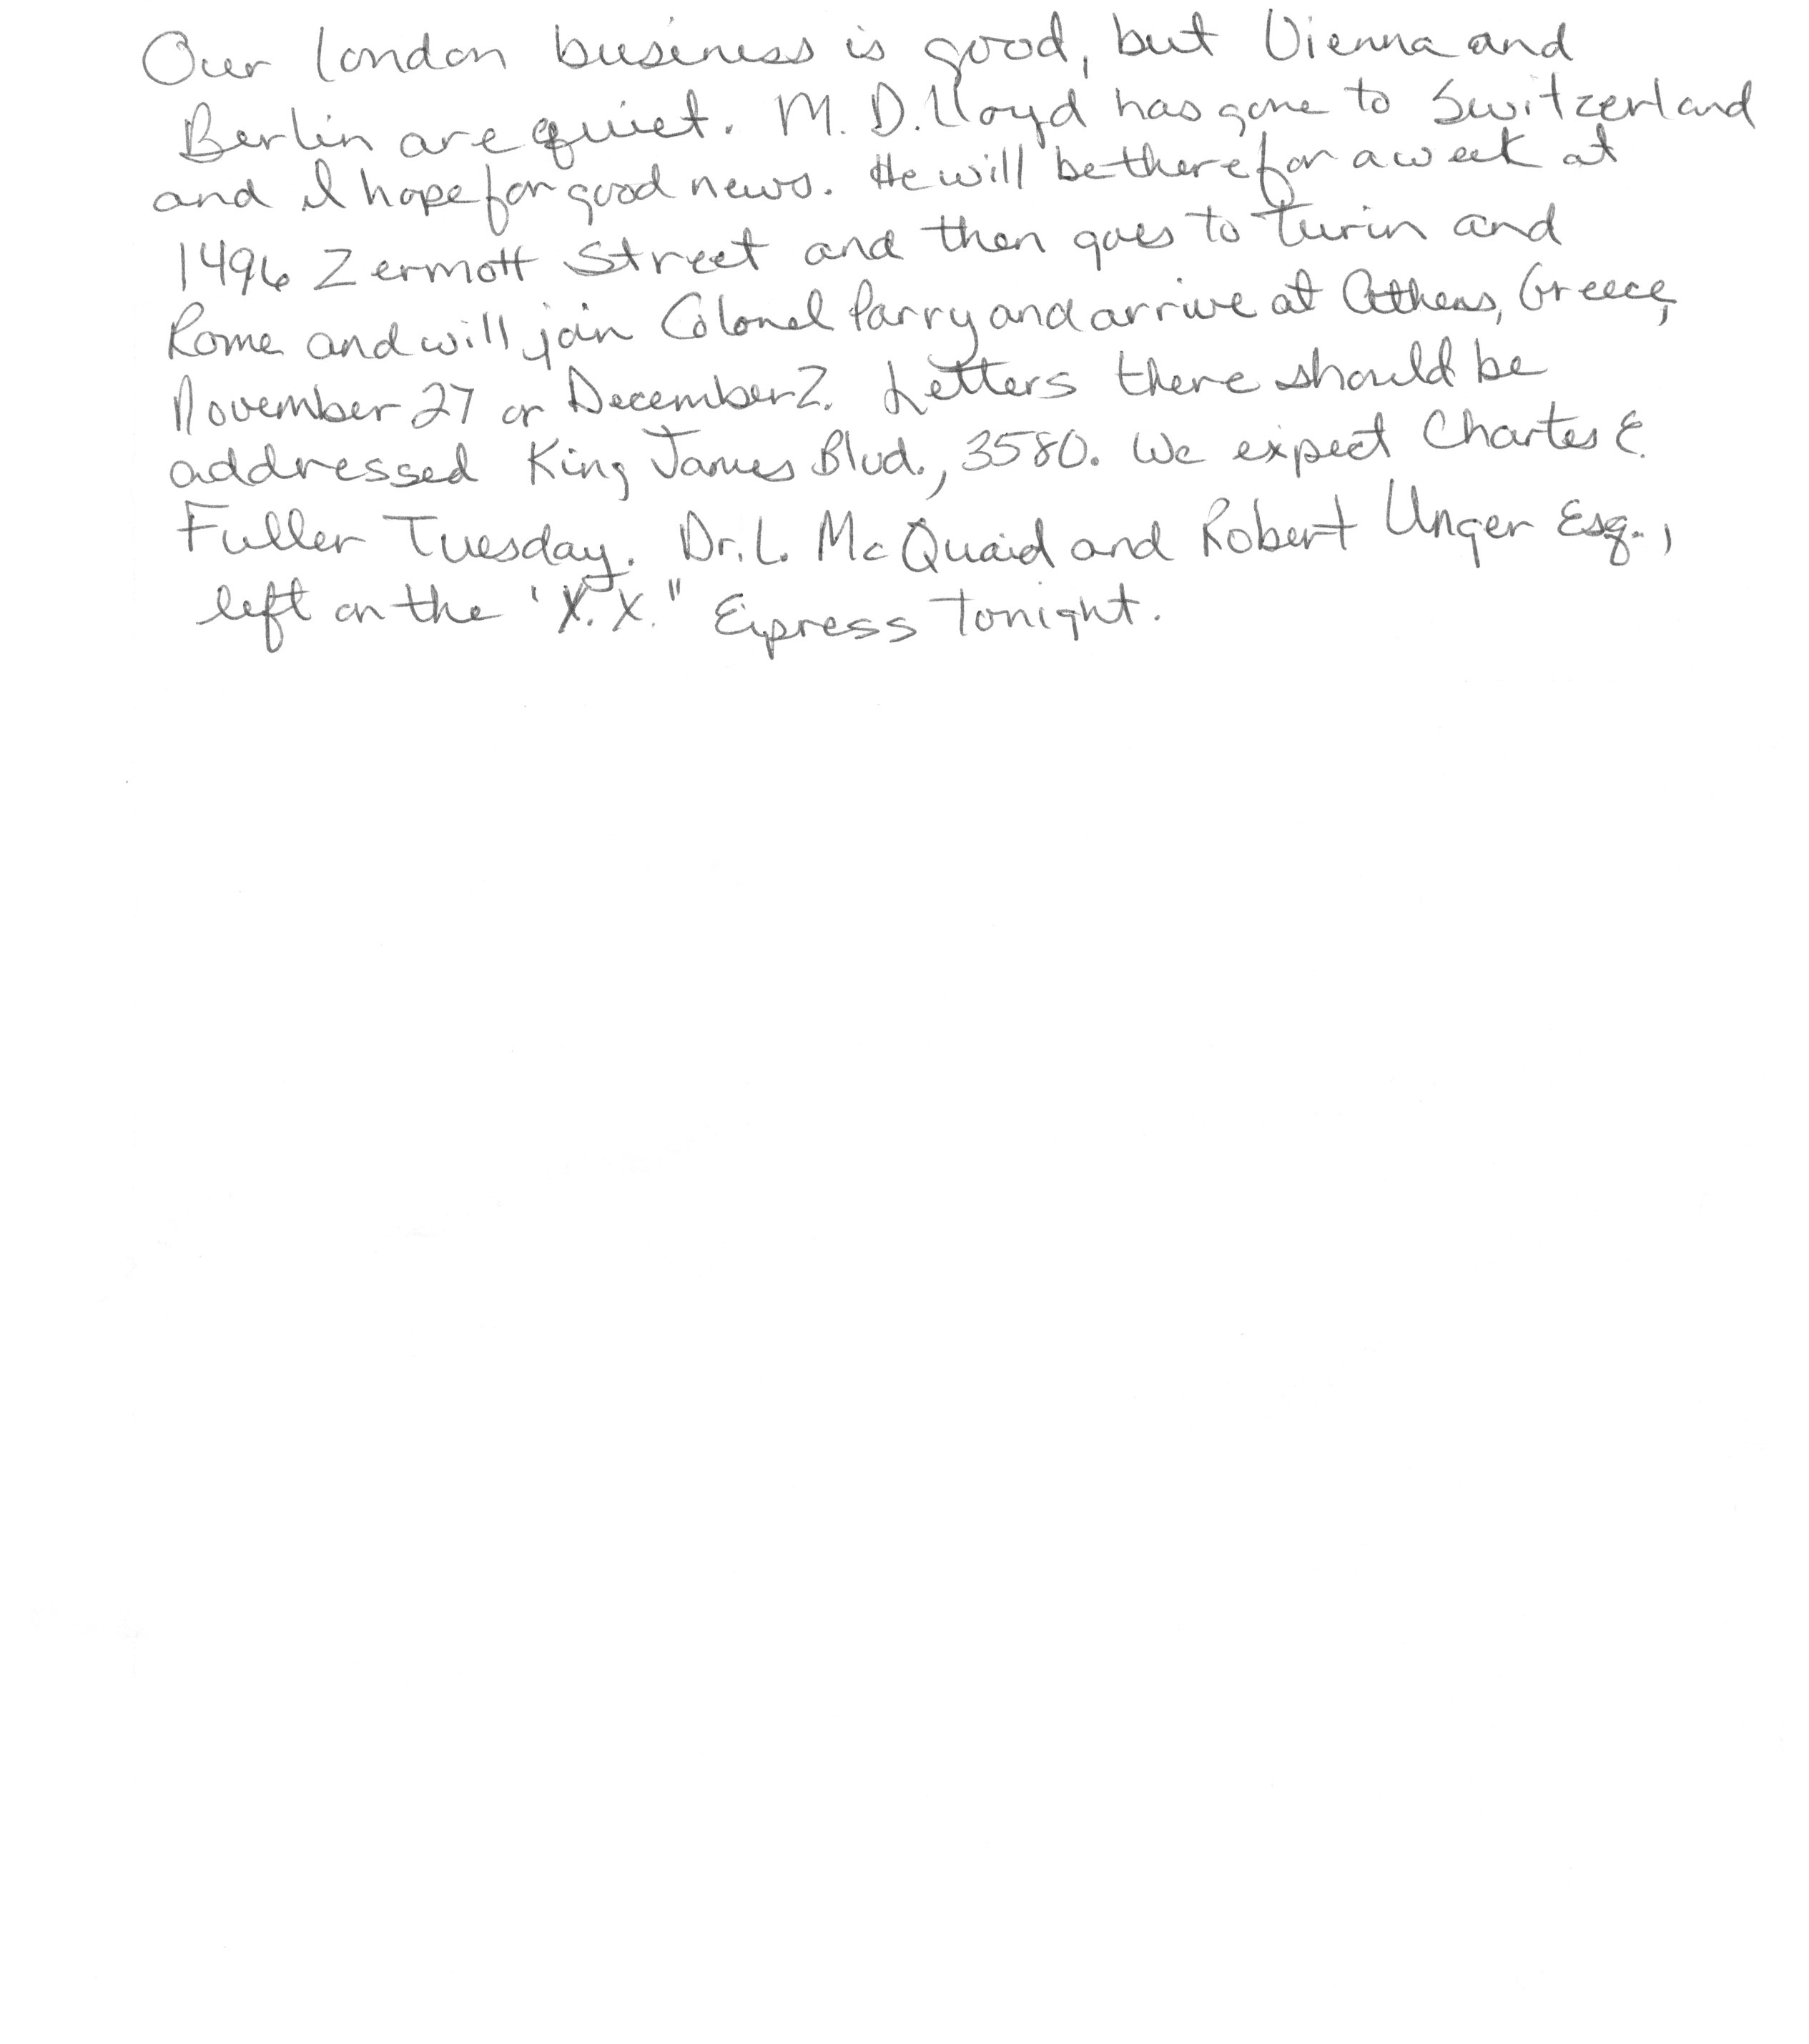 Our London business is good, but Vienna and
Berlin are quiet. M. D. Lloyd has gone to Switzerland
and I hope for good news. He will be there for a week at
1496 Zermott Street and then goes to Turin and
Rome and will join Colonel Parry and arrive at Athens, Greece,
November 27 or December 2. Letters there should be
addressed King James Blvd., 3580. We expect Charles E.
Fuller Tuesday. Dr. L. McQuaid and Robert Unger Esq.,
left on the 'X.X." Express tonight.